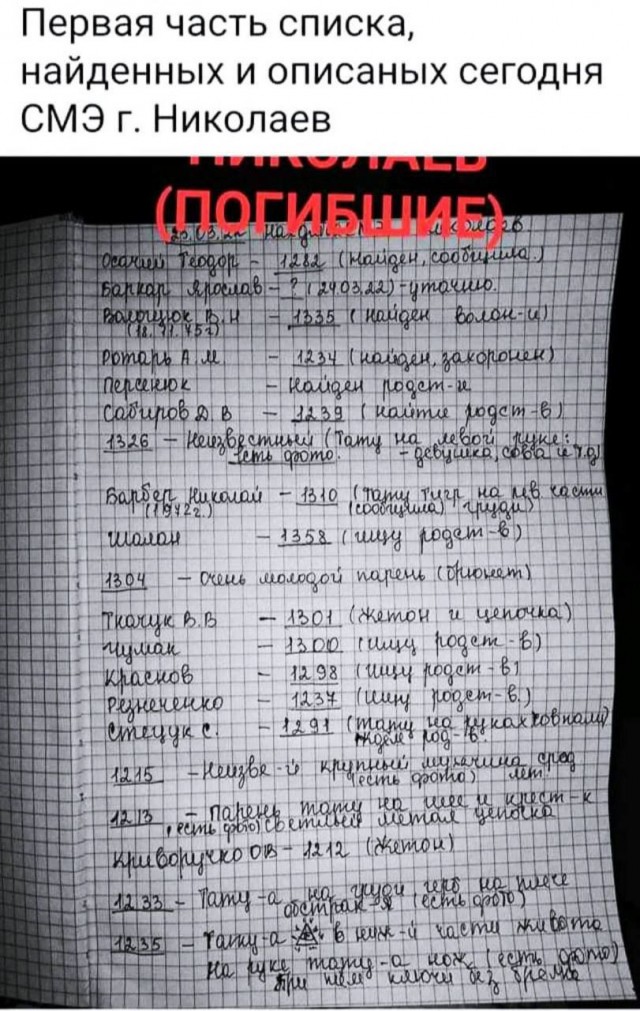 Первая часть списка,
найденных и описаных сегодня
СМЭ г. Николаев
НИКОЛАЕВ
(ПОГИБШИЕ)
Теодор - 1282 (найден, сообщила.)
Баркар Ярослав - ? (24.03.22) - уточню.
В.Н - 1335 (найден волон-и)
Ротарь А.М. - 1234 (найден, захоронен)
Персенюк - найден родст-и
Сабиров Д.В - 1239 (найти родст-в)
1326 - Неизвестный (Тату на левой руке:
есть фото. - девушка, сова и т.д)
Барбер Николай - 1310 (тату тигр на лев. части
(1972г.) (сообщила) груди)
Шалан - 1358 (ищу родст-в)
1304 - Очень молодой парень (брюнет)
Ткачук В.В - 1301 (жетон и цепочка)
Чумак - 1300 (ищу родст-в)
Краснов - 1298 (ищу родст-в)
Резнеченко - 1237 (ищу родст-в.)
Стецук С. - 1291 (тату на руках
род-в.
1215 - Неизве-й крупный мужчина сред
(есть фото) лет
1213 - парень тату на шее и крест-к
(есть фото) светлый метал цепочка
Криворучко ОВ - 1212 (жетон)
1233 - Тату-а на груди, герб на плече
абстрак-я (есть фото)
1235 - Тату-а в ниж-й части живота
на руке тату-а нож (есть фото)
при нем ключи без